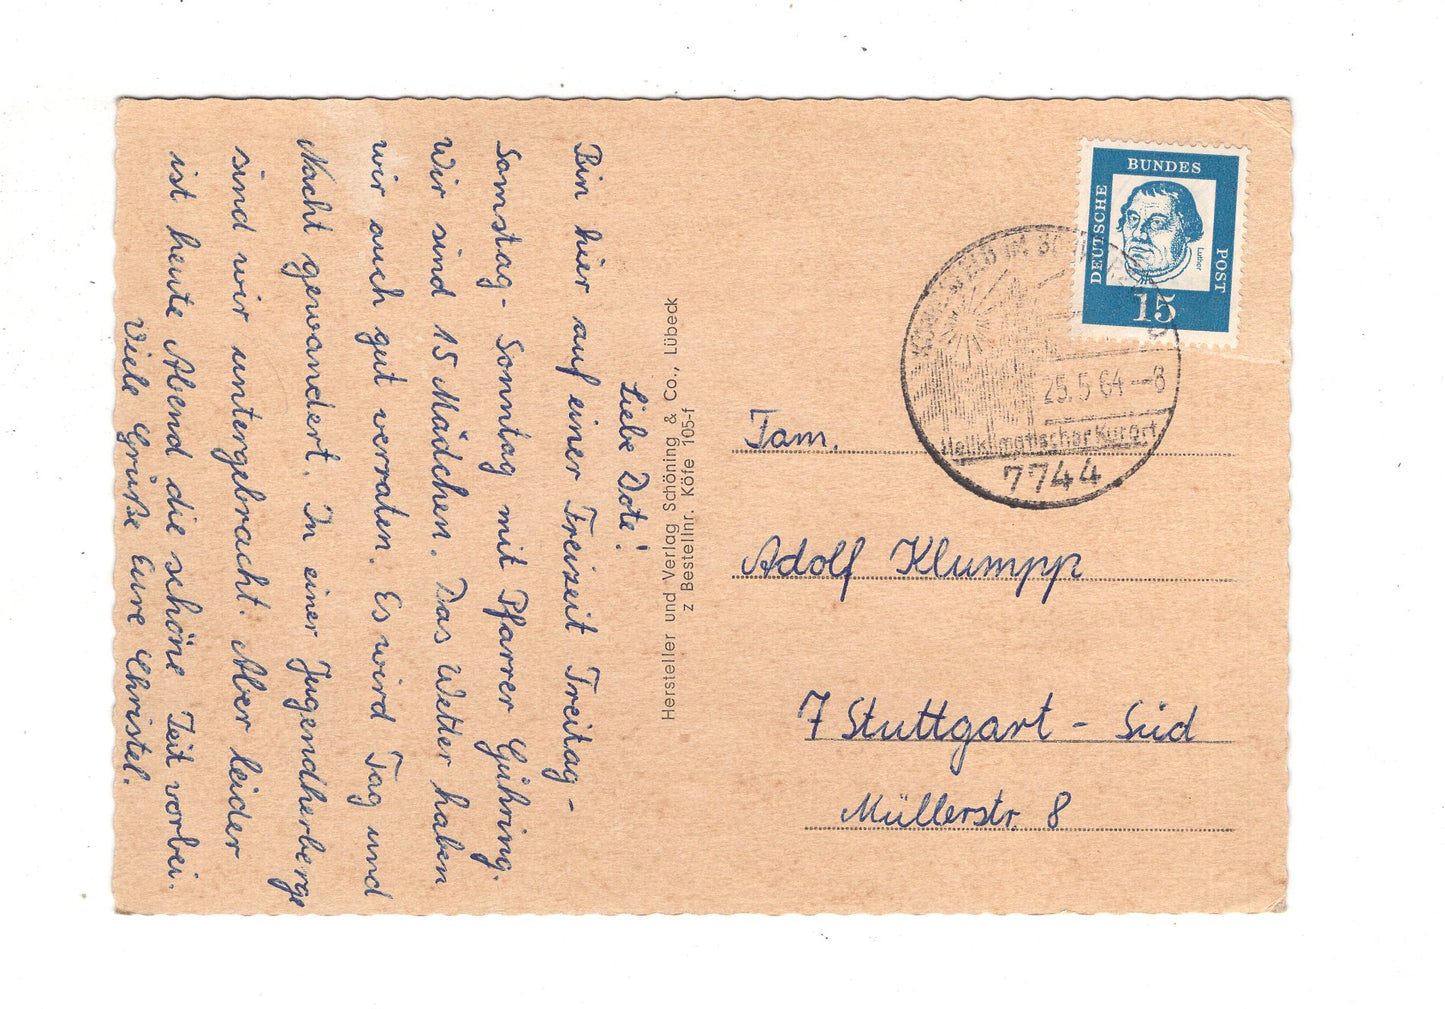 Liebe Dote!
Bin hier auf einer Freizeit Freitag-
Samstag- Sonntag mit Pfarrer Gühring.
Wir sind 15 Mädchen. Das Wetter haben
wir auch gut verraten. Es wird Tag und
Nacht gewandert. In einer Jugendherberge
sind wir untergebracht. Aber leider
ist heute Abend die schöne Zeit vorbei.
Viele Grüße Eure Christel.
Hersteller und Verlag Schöning & Co., Lübeck
z Bestellnr. Köfe 105-f
DEUTSCHE
BUNDES
POST
Luther
15
IM
25.5.64--8
Heilklimatischer Kurort
7744
Fam.
Adolf Klumpp
7 Stuttgart - Süd
Müllerstr. 8